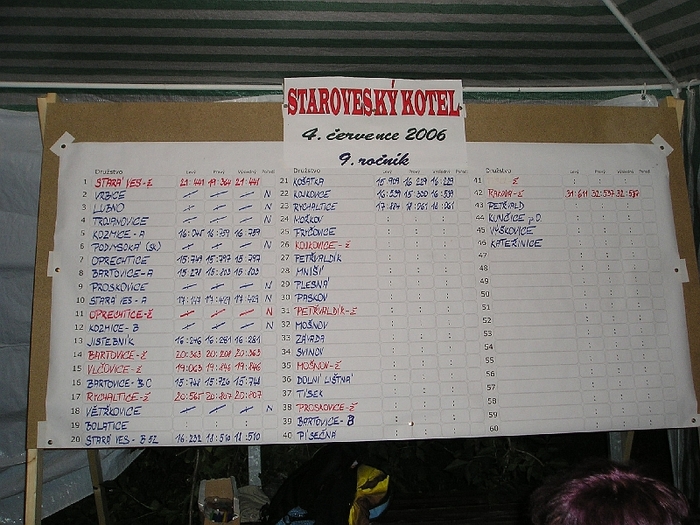 STAROVESKÝ KOTEL
4. července 2006
9. ročník
Družstvo Levý Pravý Výsledný Pořadí
1 STARÁ VES-ž 21:441 19:364 21:441
2 VRBICE N
3 LUBNO N
4 TROJANOVICE N
5 KOZMICE-A 16:759
6 PODVYSOKÁ (SK) N
7 OPRECHTICE 15:749 15:797 15:797
8 BARTOVICE-A 15:278 15:803 15:803
9 PROSKOVICE N
10 STARÁ VES-A N
11 OPRECHTICE-ž N
12 KOZMICE-B N
13 JISTEBNÍK 16:246 16:281 16:281
14 BARTOVICE-ž 20:363 20:208 20:363
15 VLČOVICE-ž 19:063 19:846 19:846
16 BARTOVICE-BC 15:748 15:726 15:748
17 RYCHALTICE-ž 20:565 20:807 20:807
18 VĚTŘKOVICE N
19 BOLATICE
20 STARÁ VES-B 16:232 18:510 18:510
Družstvo Levý Pravý Výsledný Pořadí
21 KOŠATKA 15:909 16:229 16:229
22 KOJKOVICE 16:539 15:300 16:539
23 RYCHALTICE 17:884 18:061 18:061
24 MOŘKOV
25 FRYČOVICE
26 KOJKOVICE-ž
27 PETŘVALDÍK
28 MNIŠÍ
29 PLESNÁ
30 PASKOV
31 PETŘVALDÍK-ž
32 MOŠNOV
33 ZÁVADA
34 SVINOV
35 MOŠNOV-ž
36 DOLNÍ LIŠTNÁ
37 TÍSEK
38 PROSKOVICE-ž
39 BARTOVICE-B
40 PÍSEČNÁ
Družstvo Levý Pravý Výsledný Pořadí
41 ž
42 31:611 32:537 32:537
43 PETŘVALD
44 KUNČICE p.O.
45 VÝŠKOVICE
46 KATEŘINICE
47
48
49
50
51
52
53
54
55
56
57
58
59
60